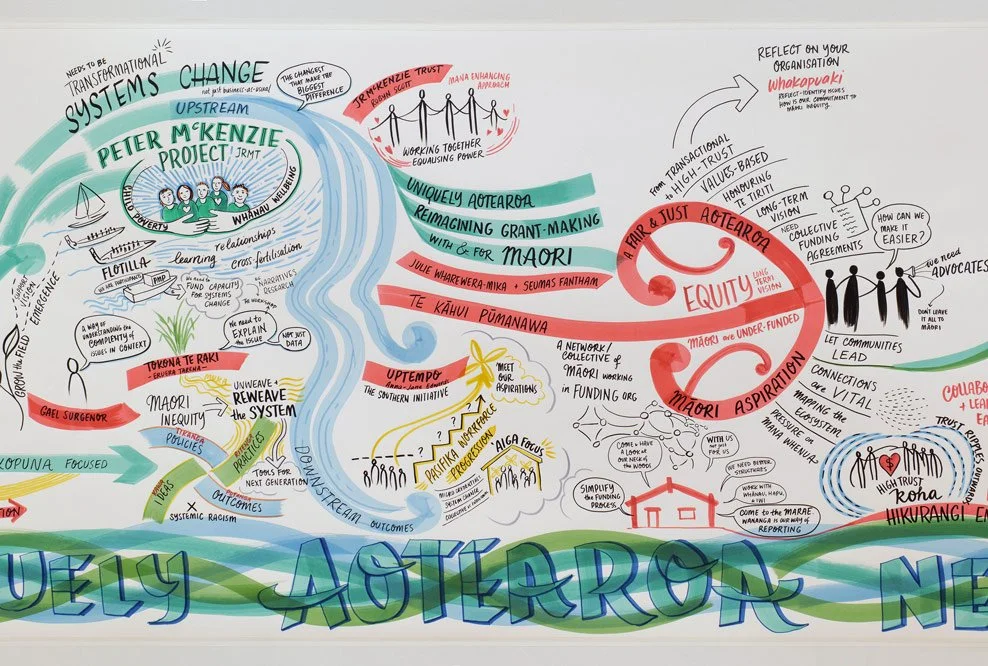 NEEDS TO BE
TRANSFORMATIONAL
SYSTEMS CHANGE
not just business-as-usual
UPSTREAM
THE CHANGES
THAT MAKE THE
BIGGEST
DIFFERENCE
PETER McKENZIE
PROJECT JRMT
CHILD POVERTY
WHĀNAU WELLBEING
FLOTILLA
relationships
learning
cross-fertilisation
WE ARE PARTICIPANTS
PMP
We need to
FUND CAPACITY
FOR SYSTEMS
CHANGE
NARRATIVES
RESEARCH
GROW the FIELD
SUPPORT
VISION
EMERGENCE
A WAY OF
UNDERSTANDING the
COMPLEXITY of
ISSUES IN CONTEXT
We need to
EXPLAIN
the ISSUE
NOT JUST
DATA
TOKONA TE RAKI
- ERUERA TARENA -
GAEL SURGENOR
MĀORI
INEQUITY
UNWEAVE +
REWEAVE
the SYSTEM
TIKANGA
POLICIES
PRACTICES
IDEAS
OUTCOMES
TOOLS FOR
NEXT GENERATION
X
SYSTEMIC RACISM
KOPUNA FOCUSED
JR McKENZIE TRUST
ROBYN SCOTT
MANA ENHANCING
APPROACH
WORKING TOGETHER
EQUALISING POWER
UNIQUELY AOTEAROA
REIMAGINING GRANT-MAKING
WITH & FOR MĀORI
JULIE WHAREWERA-MIKA + SEUMAS FANTHAM
TE KĀHUI PŪMANAWA
UPTEMPO
THE SOUTHERN INITIATIVE
MEET
OUR
ASPIRATIONS
? ? ?
PASIFIKA WORKFORCE
PROGRESSION
'AIGA FOCUS
MICRO CREDENTIALS
SYSTEM CHANGE
DOWNSTREAM OUTCOMES
A NETWORK/
COLLECTIVE of
MĀORI WORKING
in FUNDING ORG
COME & HAVE
A LOOK AT
OUR NECK OF
THE WOODS
WITH US
not just
FOR US
SIMPLIFY
the FUNDING
PROCESS
WE NEED BETTER
STRUCTURES
WORK WITH
WHĀNAU, HAPŪ,
+ IWI
COME to the MARAE
WANANGA IS OUR WAY OF
REPORTING
REFLECT ON YOUR
ORGANISATION
whakapuaki
REFLECT-IDENTIFY ISSUES
HOW IS OUR COMMITMENT TO
MĀORI INEQUITY
FROM TRANSACTIONAL
to HIGH-TRUST
VALUES-BASED
HONOURING
TE TIRITI
LONG-TERM
VISION
NEED
COLLECTIVE
FUNDING
AGREEMENTS
A FAIR & JUST AOTEAROA
EQUITY
LONG
TERM
VISION
MĀORI are UNDER-FUNDED
MĀORI ASPIRATION
HOW CAN WE
MAKE IT
EASIER?
we NEED
ADVOCATES
DON'T LEAVE
IT ALL TO
MĀORI
LET COMMUNITIES
LEAD
CONNECTIONS
are VITAL
MAPPING the
ECOSYSTEM
PRESSURE on
MANA WHENUA
TRUST RIPPLES OUTWARDS
$
HIGH TRUST
koha
HIKURANGI
UELY AOTEAROA NE